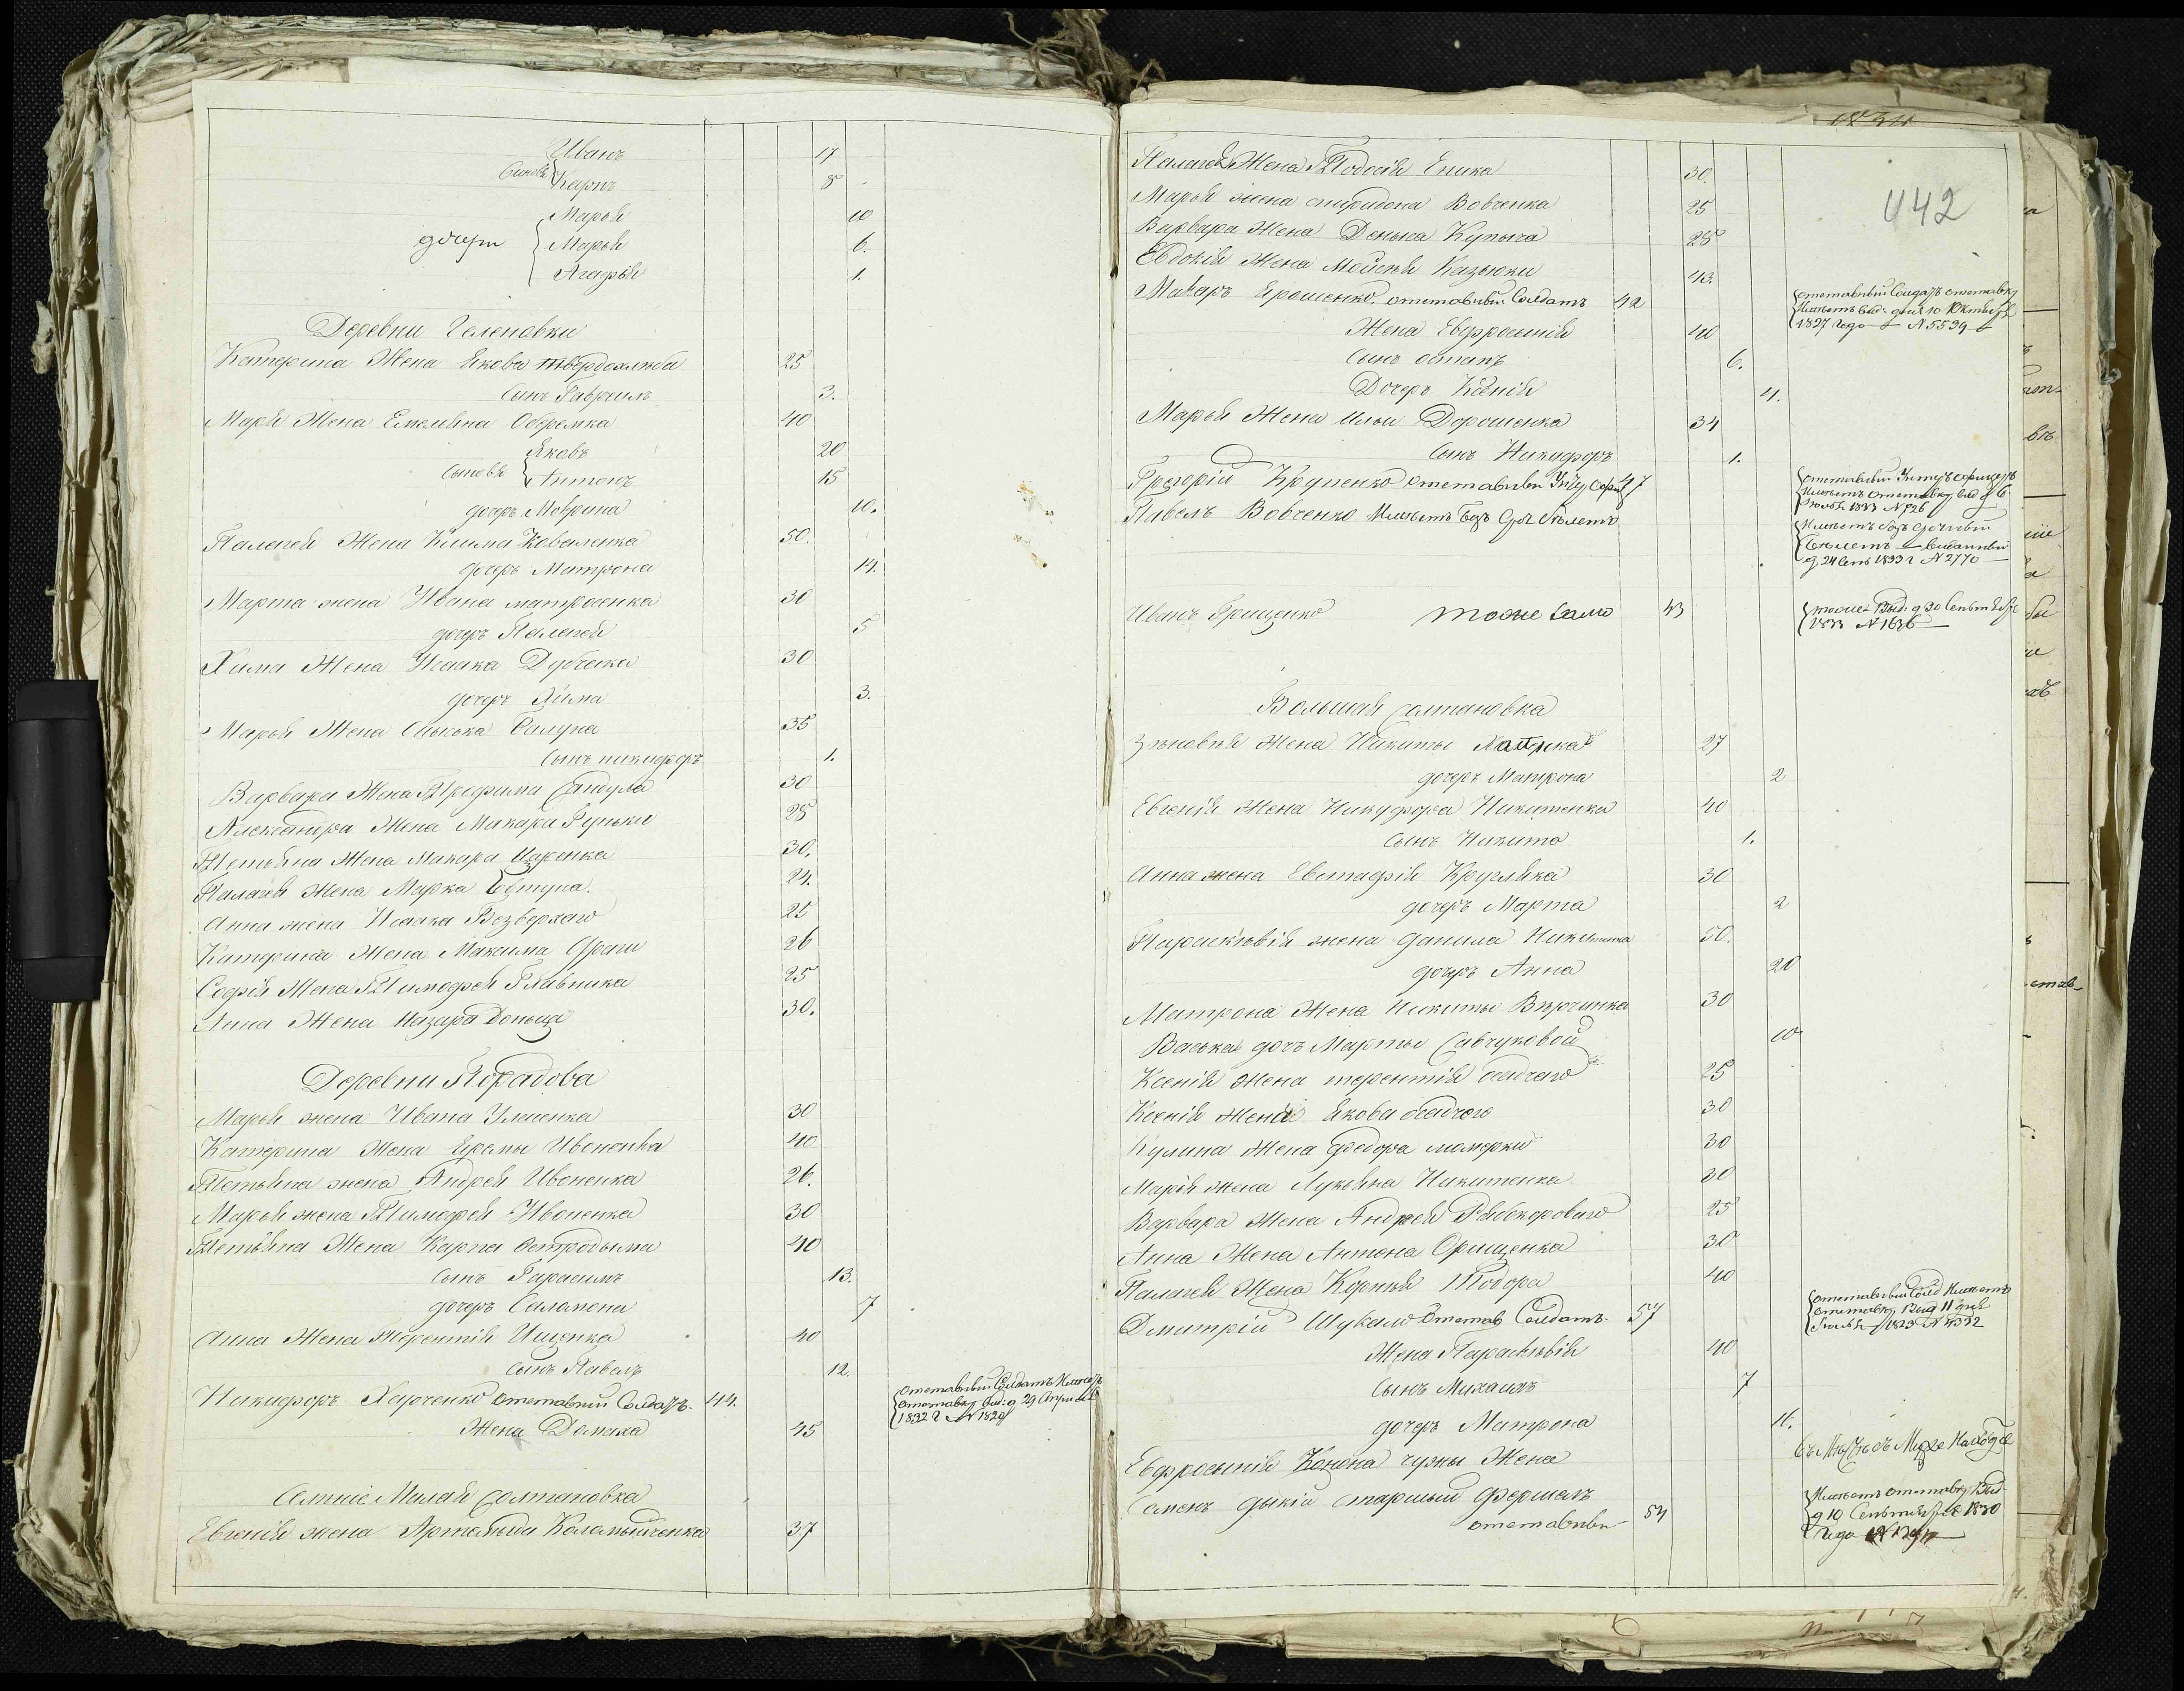 Иванъ 17
Сыновья Карпъ 8
Марья 10
дочери Марья 6.
Агафья 1.
Деревни Геленовки
Катерина Жена Якова Твердохлиба 25
Сынъ Гавреилъ 3.
Марья Жена Емельяна Оберемка 40
Яковъ 20
Сыновья Антонъ 15
дочеръ Моврина 10.
Палагея Жена Клима Коваленка 50.
дочеръ Матрона 14.
Марта жена Ивана матросенка 30
дочеръ Палагея 5
Хима Жена Исаака Дубченка 30
дочеръ Хима 3.
Марья Жена Сысоька Балуна 35
Сынъ никифоръ 1.
Варвара Жена Трафима Сандула 30
Александра Жена Макара Рупьки 25
Тетьяна Жена Макара Царенка 30.
Палагея Жена Марка Евтуха. 24.
Анна жена Исаака Безверхаго 25
Катерина Жена Максима Драги 26
Софія Жена Тимофея Главника 25
Анна Жена Назара Доньца 30.
Деревни Порадова
Марья жена Ивана Улесенка 30
Катерина Жена Яремы Ивоненка 40
Тетьяна жена Андрея Ивоненка 26.
Марья жена Тимофея Ивоненка 30
Тетьяна Жена Карпа Остродыма 40
Сынъ Гарасимъ 13.
дочеръ Саламони 7
Анна Жена Терентія Ищенка 40
Сынъ Павелъ 12.
Никифоръ Харченко отставный Солдатъ. 44. отставный Солдатъ Имеетъ
отставку выд: д 29 Апреля
1832 г № 1829
Жена Домаха 45
Селеніе Малая Солтановка
Евгенія жена Артемьда Каламыйченка 37
1834
442
Палагея Жена Тодосія Еника 30.
Марья жена спиридона Вовченка 25
Варвара Жена Деныса Купыча 25
Евдокія Жена Мойсея Казьюки 43.
Макаръ Ярошенко. отставный Солдатъ 42 отставный Солдатъ отставку
Имеетъ выд: дня 10 Октября
1827 года № 5539
Жена Евфросинія 40
Сынъ остапъ 6.
Дочеръ Ксенія 4.
Марья Жена Ильи Дорошенка 34
Сынъ Никифоръ 1.
Григорій Крупенко отставный Унтер Офиц 47 отставный Унтеръ офицеръ
Имеетъ отставку выд д 6
Іюля 1833 № 726
Павелъ Вовченко Имеетъ безъ Сроч Билетъ Имеетъ безъ Срочный
Билетъ выданный
д 24 Сент 1833 г № 2770
Иванъ Грищенко тоже само 43 тоже Выд: д 30 Сентября
1833 № 1636
Большая Солтановка
Зѣновія Жена Никиты 27
дочеръ Матрона 2
Евгенія Жена Никифора Никитенка 40
Сынъ Никита 1.
Анна жена Евстафія Кругляка 30
дочеръ Марта 2
Параскѣвія жена данила Никитенка 50.
дочеръ Анна 20
Матрона Жена Никиты Вѣрченка 30
Васька дочъ Марты Савчуковой 10
Ксенія Жена терентія осадчего 25
Ксенія Жена Якова осадчого 30
Кулина Жена Федора мамерки 30
Марія жена Лукьяна Никитенка 30
Варвара Жена Андрея Рябокороваго 25
Анна Жена Антона Орищенка 30
Палагея Жена Корнея Тодора 40
Дмитрій Шукало Отстав Солдатъ. 57 отставный Солд Имеетъ
отставку Выд 11 дня
1829 № 4332
Жена Параскѣвія 40
Сынъ Михаилъ 7
дочеръ Матрона 16.
Евфросинія Конона чужы Жена
Семенъ дыкій старшый Фершелъ
отставный 54 Имеетъ отставку Выд
д 10 Сентября 1830
года №